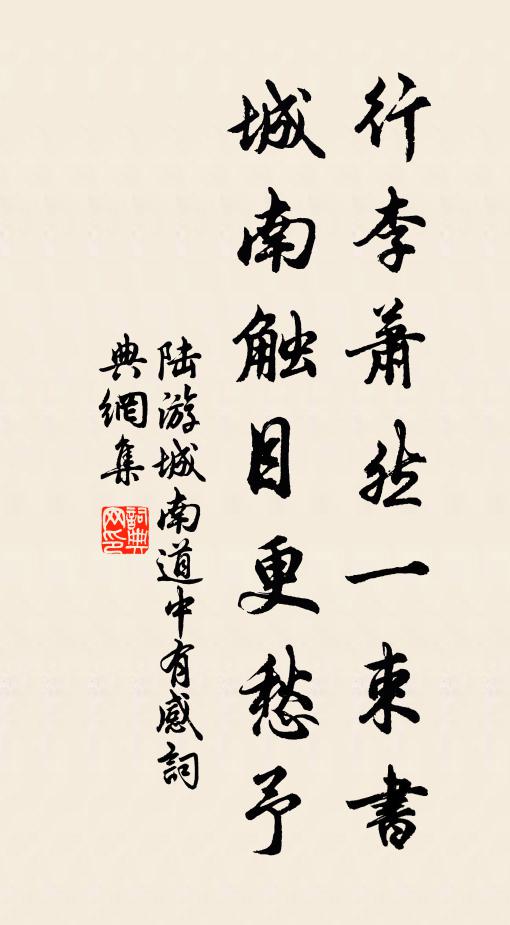 行李蕭然一束書
城南触目更愁予
陆游城南道中有感詞
典網集
詞典
网印